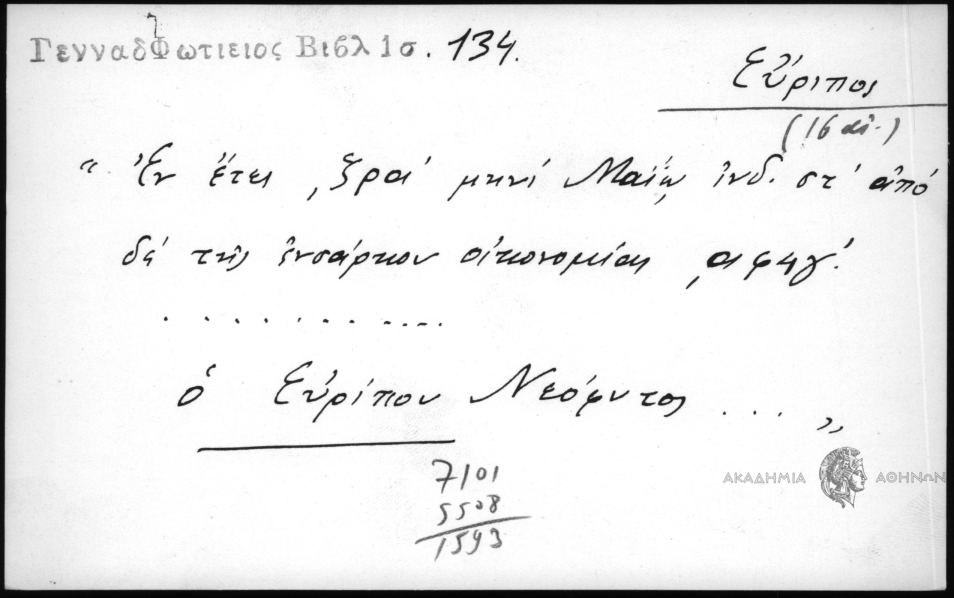 ΓενναδΦωτιειος Βιβλ 1σ. 134.
Εὔριπος
(16 αἰ.)
“ Ἐν ἔτει ͵ζραʹ μηνὶ Μαΐῳ ἰνδ. στʹ ἀπὸ
δὲ τῆς ἐνσάρκου οἰκονομίας ͵αφϟγʹ.
. . . . . . . . . . . .
ὁ Εὐρίπου Νεόφυτος . . . ”
7101
5508
1593
ΑΚΑΔΗΜΙΑ ΑΘΗΝΩΝ